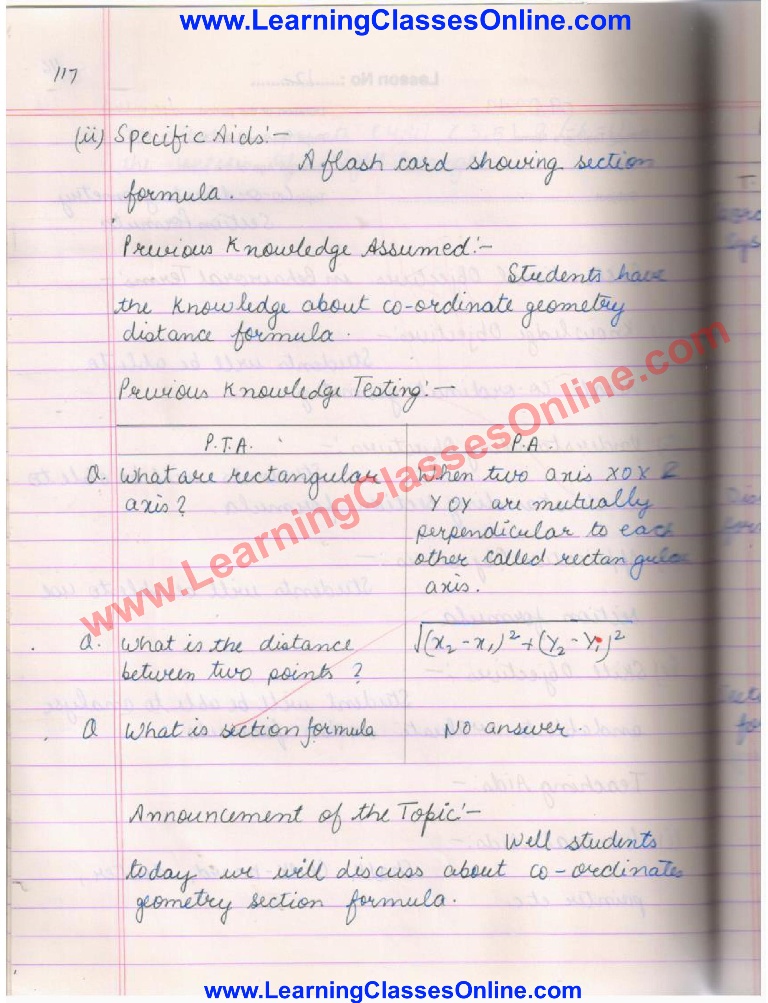 www.LearningClassesOnline.com
117
(ii) Specific Aids:-
A flash card showing section
formula.
Previous Knowledge Assumed:-
Students have
the knowledge about co-ordinate geometry
distance formula.
Previous Knowledge Testing:-
P.T.A. P.A.
Q. What are rectangular When two axis XOX &
axis? YOY are mutually
perpendicular to each
other called rectangular
axis.
www.LearningClassesOnline.com
Q. What is the distance √(x₂-x₁)²+(Y₂-Y₁)²
between two points?
Q What is section formula No answer.
Announcement of the Topic:-
Well students
today we will discuss about co-ordinates
geometry section formula.
www.LearningClassesOnline.com